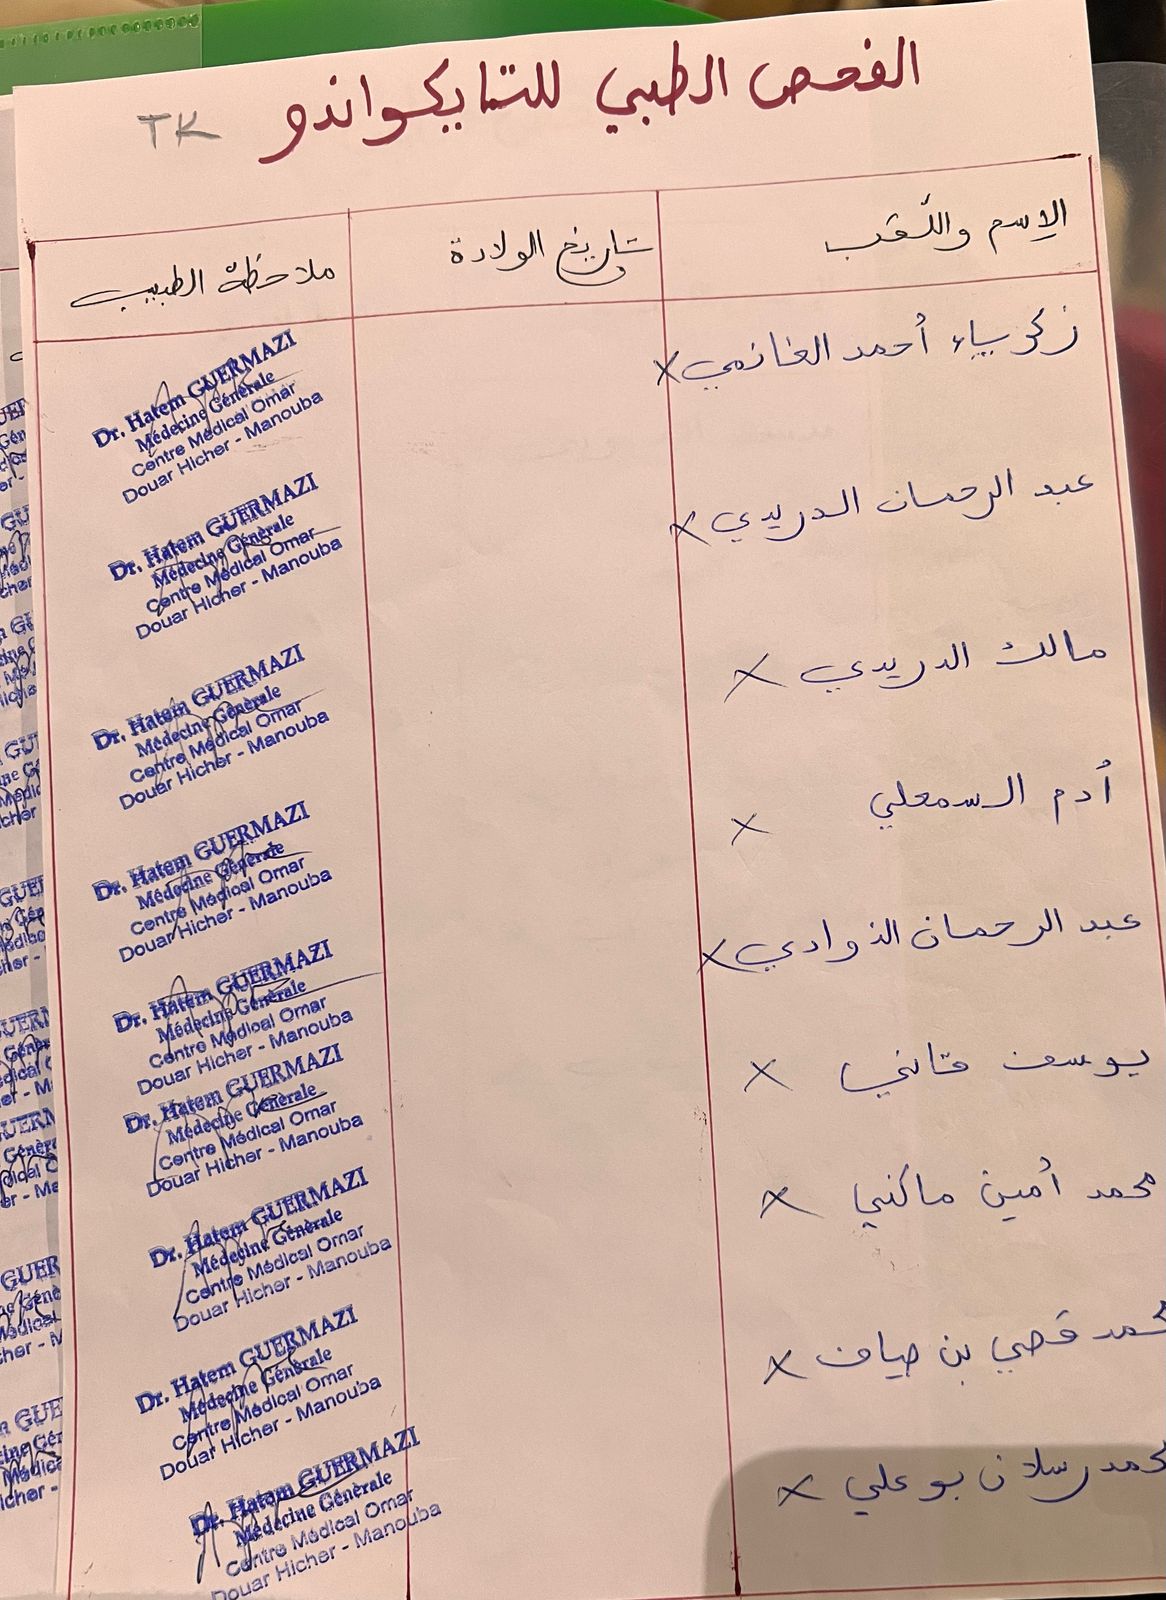 الفحص الطبي للتايكواندو
TK
الإسم واللّقب
تاريخ الولادة
ملاحظة الطبيب
زكرياء أحمد الغانمي X
Dr. Hatem GUERMAZI
Médecine Générale
Centre Médical Omar
Douar Hicher - Manouba
عبد الرحمان الدريدي X
Dr. Hatem GUERMAZI
Médecine Générale
Centre Médical Omar
Douar Hicher - Manouba
مالك الدريدي X
Dr. Hatem GUERMAZI
Médecine Générale
Centre Médical Omar
Douar Hicher - Manouba
أدم السمعلي X
Dr. Hatem GUERMAZI
Médecine Générale
Centre Médical Omar
Douar Hicher - Manouba
عبد الرحمان الذوادي X
Dr. Hatem GUERMAZI
Médecine Générale
Centre Médical Omar
Douar Hicher - Manouba
يوسف قاني X
Dr. Hatem GUERMAZI
Médecine Générale
Centre Médical Omar
Douar Hicher - Manouba
محمد أمين ماكني X
Dr. Hatem GUERMAZI
Médecine Générale
Centre Médical Omar
Douar Hicher - Manouba
محمد قصي بن ضياف X
Dr. Hatem GUERMAZI
Médecine Générale
Centre Médical Omar
Douar Hicher - Manouba
محمد رسلان بوعلي X
Dr. Hatem GUERMAZI
Médecine Générale
Centre Médical Omar
Douar Hicher - Manouba